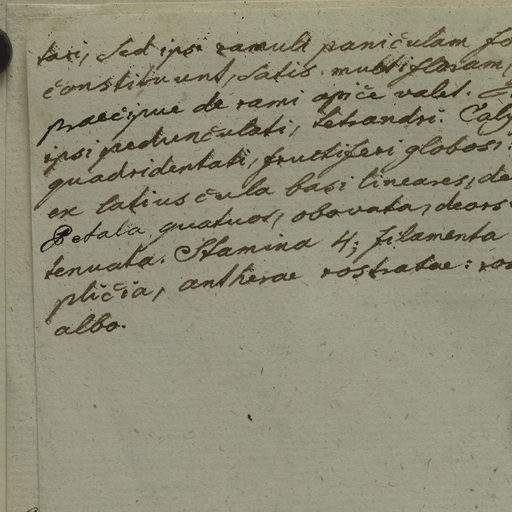 tari, sed ipsi ramuli paniculam fo
constituunt, satis multifloram,
praecipue de rami apice valet.
ipsi pedunculati, tetrandri. Caly
quadridentati, fructiferi globosi:
ex latiuscula basi lineares, de
Petala quatuor, obovata, deors
tenuata. Stamina 4; filamenta
plicia, antherae rostratae: ros
albo.